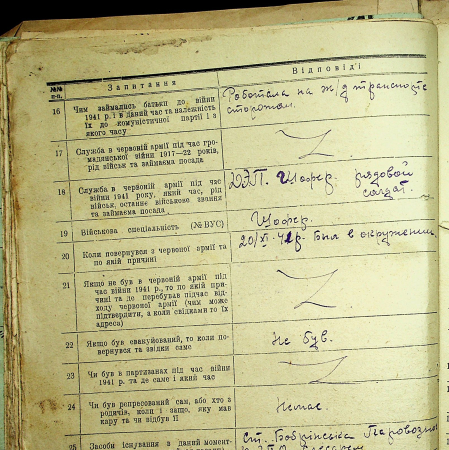 №№ п.п.
Запитання
Відповіді
16
Чим займались батьки до війни
1941 р. і в даний час та належність
їх до комуністичної партії і з
якого часу
Работала на ж/д транспорте
сторожом.
17
Служба в червоній армії під час гро-
мадянської війни 1917—22 років,
рід військ та займаєма посада
Z
18
Служба в червоній армії під час
війни 1941 року, який час, рід
військ, останнє військове звання
та займаєма посада
Шофер. рядовой
солдат.
19
Військова спеціальність (№ ВУС)
Шофер.
20
Коли повернувся з червоної армії та
по якій причині
Был в окружении
21
Якщо не був в червоній армії під
час війни 1941 р., то по якій при-
чині та де перебував підчас від-
ходу червоної армії (чим може
підтвердити, а коли свідками то їх
адреса)
Z
22
Якщо був евакуйований, то коли по-
вернувся та звідки саме
Не був.
23
Чи був в партизанах під час війни
1941 р. та де саме і який час
Z
24
Чи був репресований сам, або хто з
родичів, коли і защо, яку мав
кару та чи відбув її
Немає.
25
Засоби існування в даний момент-
Ст. Бобрінська